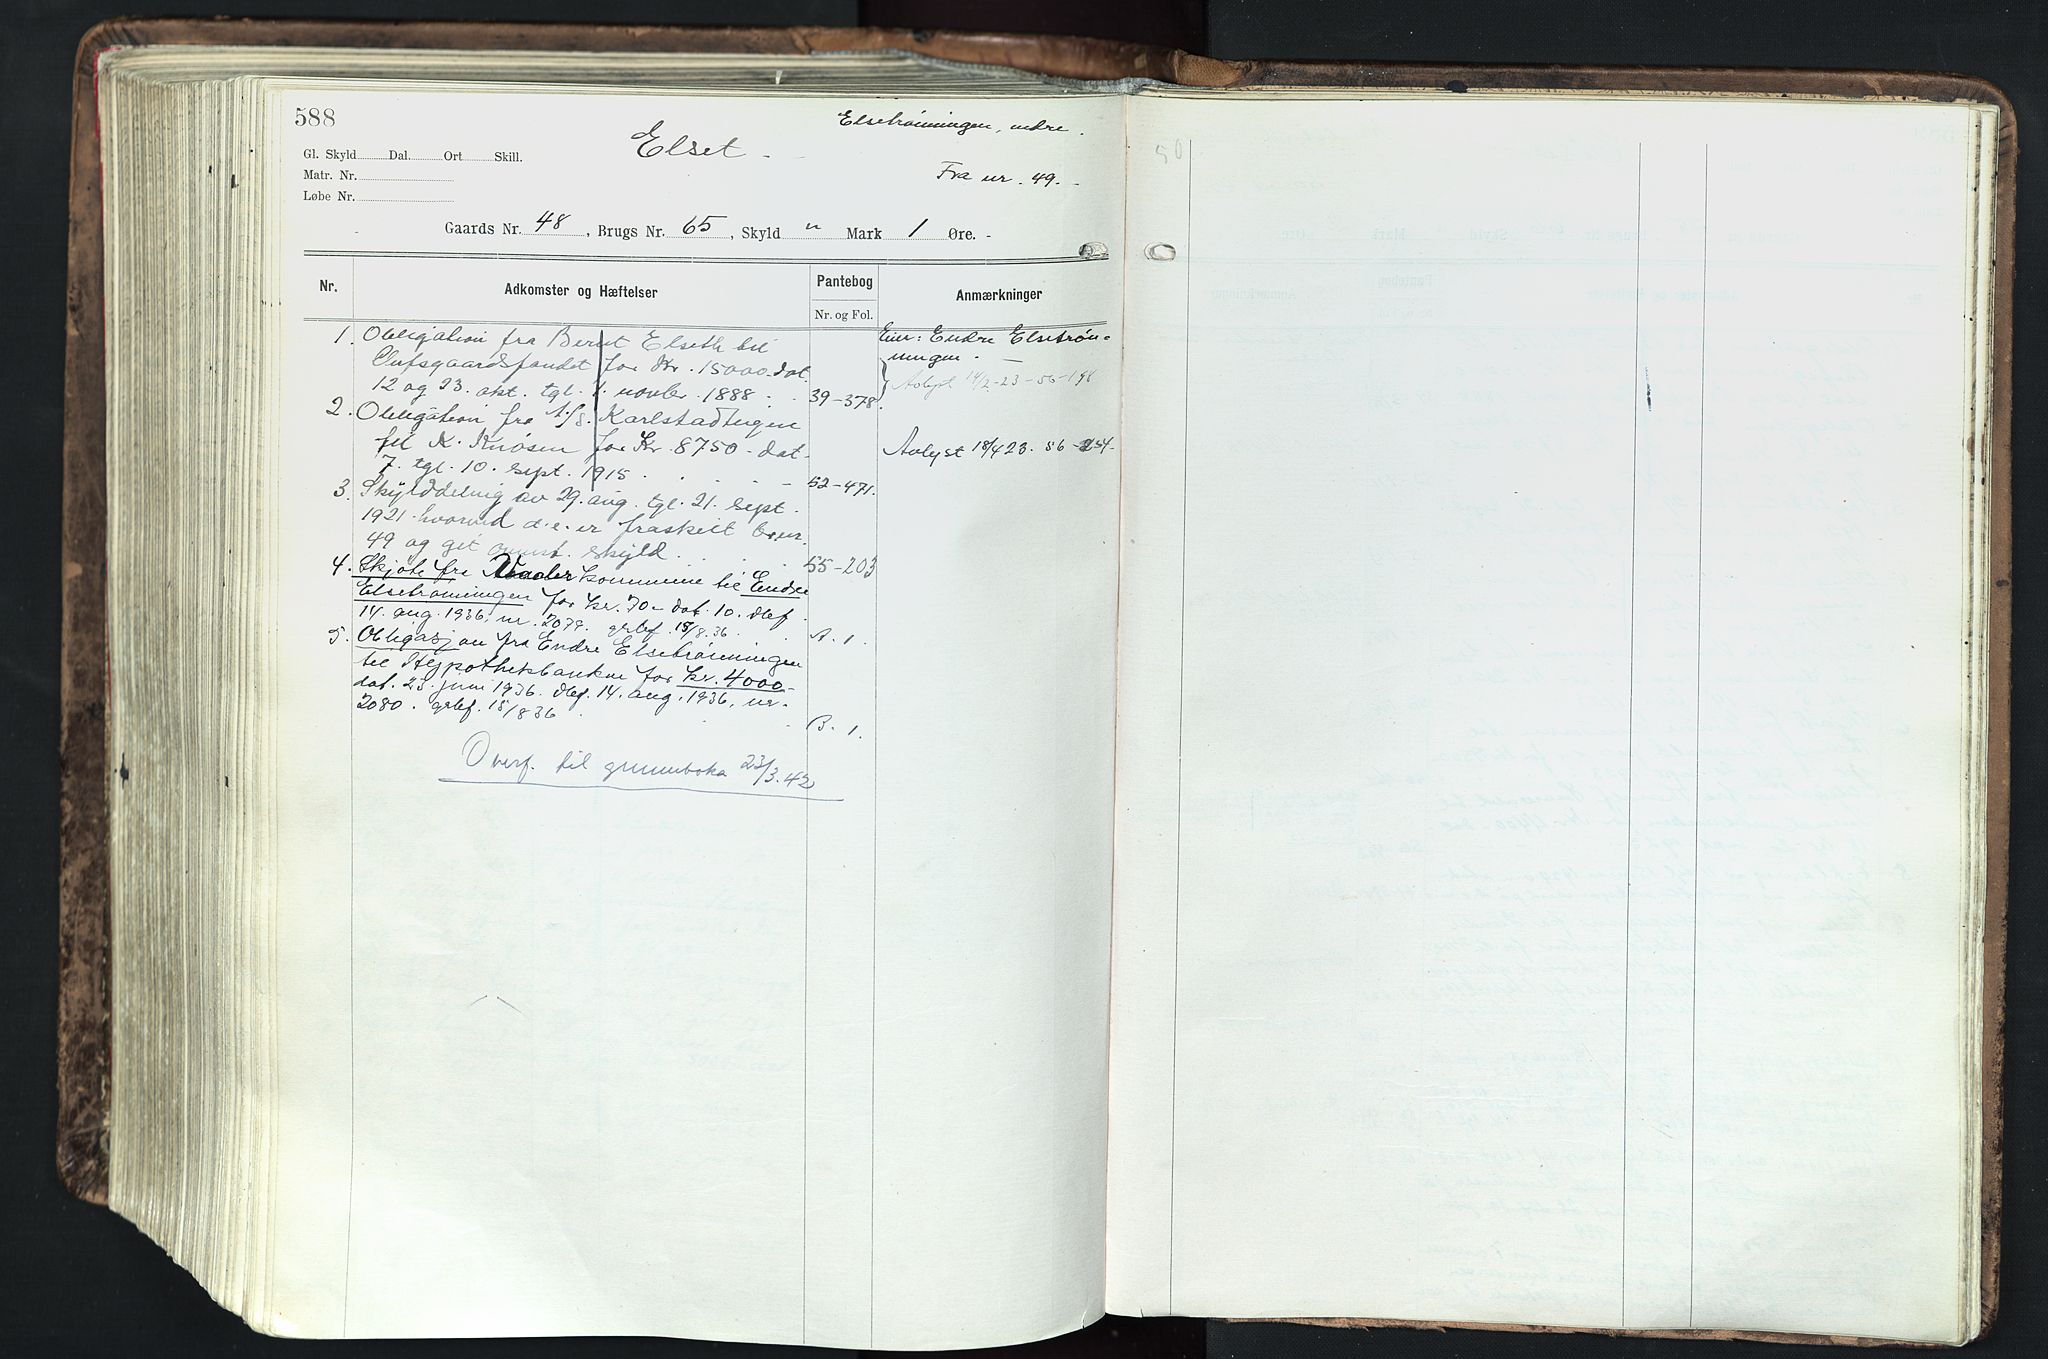 588
Elsetrønningen, nedre.
Elset.
Gl. Skyld Dal. Ort Skill.
Matr. Nr.
Fra nr. 49.
Løbe Nr.
Gaards Nr. 48, Brugs Nr. 65, Skyld " Mark 1 Øre.
Nr.
Adkomster og Hæftelser
Pantebog
Nr. og Fol.
Anmærkninger
1. Obligation fra Bernt Elseth til
Clufsgaardsfondet for Kr. 15000 dat.
12 og 23. okt. tgl. 1. novbr. 1888 39-378.
Eier: Endre Elsetrøn-
ningen.
Avlyst 14/2-23-56-198
2. Obligation fra A/S. Karlstadtugen
til K. Knøsen for Kr. 8750 - dat.
7. tgl. 10. sept. 1915. 52-471.
Avlyst 18/4 23. 56-254-
3. Skylddeling av 29. aug. tgl. 21. sept.
1921 hvorved d. e. er fraskilt b.nr.
49 og git ovenst. skyld. 55-203
4. Skjøte fra Vaaler kommune til Endre
Elsetrønningen for kr. 70 - dat. 10. dbf.
14. aug. 1936, nr. 2079. grbf. 15/8.36. A. 1.
5. Obligasjon fra Endre Elsetrønningen
til Hypothekbanken for kr. 4000-
dat. 23. juni 1936. dbf. 14. aug. 1936, nr.
2080. grbf. 15/8 36. B. 1.
Overf. til grunnboka 23/3.42
50